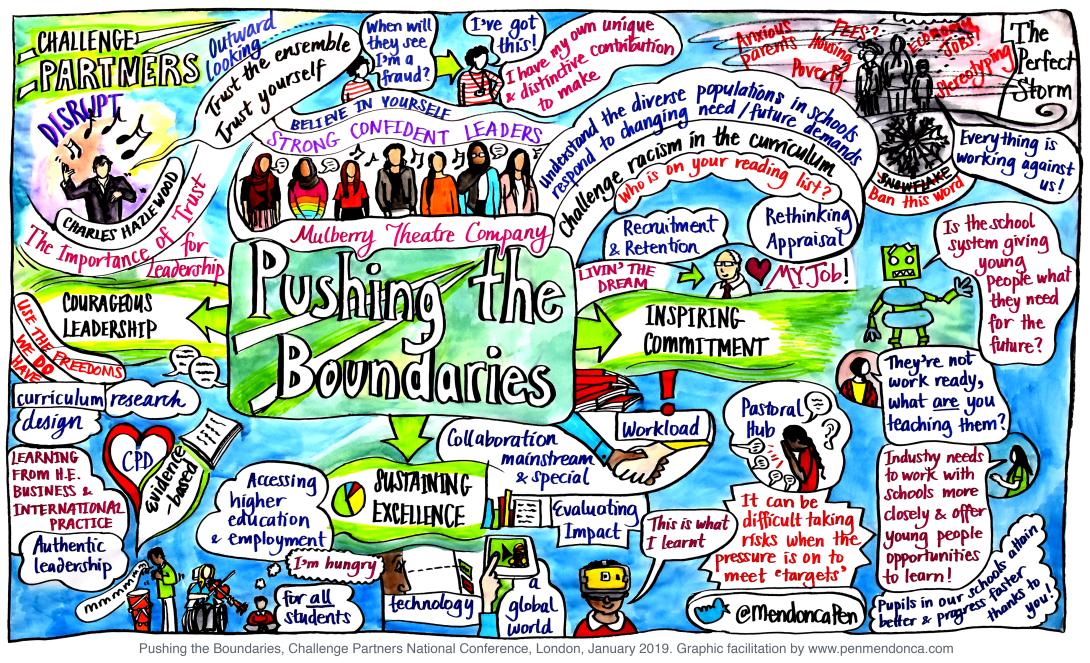 CHALLENGE
PARTNERS
DISRUPT
CHARLES HAZLEWOOD
The Importance of Trust
for
Leadership
Outward
Looking
Trust the ensemble
Trust yourself
When will
they see
I'm a
fraud?
I've got
this!
I have my own unique
& distinctive contribution
to make
BELIEVE IN YOURSELF
STRONG CONFIDENT LEADERS
Mulberry Theatre Company
understand the diverse populations in schools
respond to changing need/future demands
Challenge racism in the curriculum
who is on your reading list?
Anxious
parents
FEES?
Housing
Poverty
ECONOMY
JOBS?
Stereotyping
The
Perfect
Storm
SNOWFLAKE
Ban this word
Everything is
working against
us!
Recruitment
& Retention
Rethinking
Appraisal
LIVIN' THE
DREAM
MY JOB!
Is the school
system giving
young
people what
they need
for the
future?
Pushing the
Boundaries
COURAGEOUS
LEADERSHIP
USE THE FREEDOMS
WE DO
HAVE
INSPIRING
COMMITMENT
They're not
work ready,
what are you
teaching them?
curriculum
design
research
CPD
evidence
-based
LEARNING
FROM H.E.
BUSINESS &
INTERNATIONAL
PRACTICE
Authentic
leadership
mmmmm
Accessing
higher
education
& employment
SUSTAINING
EXCELLENCE
Collaboration
mainstream
& special
Workload
!
Evaluating
Impact
Pastoral
Hub
It can be
difficult taking
risks when the
pressure is on to
meet 'targets'
Industry needs
to work with
schools more
closely & offer
young people
opportunities
to learn!
I'm hungry
for all
students
technology
a
global
world
This is what
I learnt
@MendoncaPen
Pupils in our schools attain
better & progress faster
thanks to
you!
Pushing the Boundaries, Challenge Partners National Conference, London, January 2019. Graphic facilitation by www.penmendonca.com